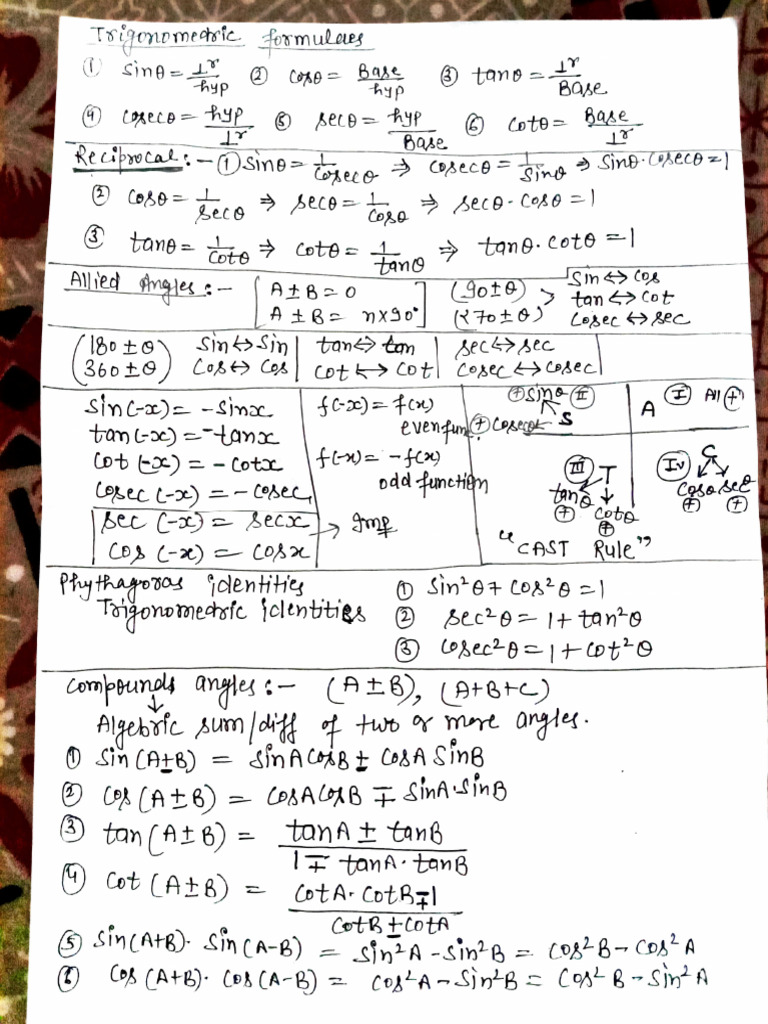 Trigonometric formulaes
① sinθ = ⊥r/hyp ② cosθ = Base/hyp ③ tanθ = ⊥r/Base
④ cosecθ = hyp/⊥r ⑤ secθ = hyp/Base ⑥ cotθ = Base/⊥r
Reciprocal :- ① sinθ = 1/cosecθ ⇒ cosecθ = 1/sinθ ⇒ sinθ·cosecθ = 1
② cosθ = 1/secθ ⇒ secθ = 1/cosθ ⇒ secθ·cosθ = 1
③ tanθ = 1/cotθ ⇒ cotθ = 1/tanθ ⇒ tanθ·cotθ = 1
Allied Angles :- [A ± B = 0
A ± B = n×90°]
(90±θ)
(270±θ) >
sin ↔ cos
tan ↔ cot
cosec ↔ sec
(180 ± θ) sin ↔ sin | tan ↔ tan | sec ↔ sec
(360 ± θ) cos ↔ cos | cot ↔ cot | cosec ↔ cosec
sin(-x) = -sinx
tan(-x) = -tanx
cot(-x) = -cotx
cosec(-x) = -cosec
sec(-x) = secx
cos(-x) = cosx
→ Imp
f(-x) = f(x)
even fun.
f(-x) = -f(x)
odd function
⊕ sinθ Ⅱ
⊕ cosecθ S
A Ⅰ All ⊕
Ⅲ T
tanθ ⊕ cotθ ⊕
Ⅳ C
cosθ ⊕ secθ ⊕
"CAST Rule"
Phythagoras identities
Trigonometric identities
① sin²θ + cos²θ = 1
② sec²θ = 1 + tan²θ
③ cosec²θ = 1 + cot²θ
Compounds angles :- (A ± B), (A+B+C)
↓
Algebric sum/diff of two or more angles.
① sin(A±B) = sinA cosB ± cosA sinB
② cos(A±B) = cosA cosB ∓ sinA·sinB
③ tan(A±B) = (tanA ± tanB)/(1 ∓ tanA·tanB)
④ cot(A±B) = (cotA·cotB ∓ 1)/(cotB ± cotA)
⑤ sin(A+B)·sin(A-B) = sin²A - sin²B = cos²B - cos²A
⑥ cos(A+B)·cos(A-B) = cos²A - sin²B = cos²B - sin²A